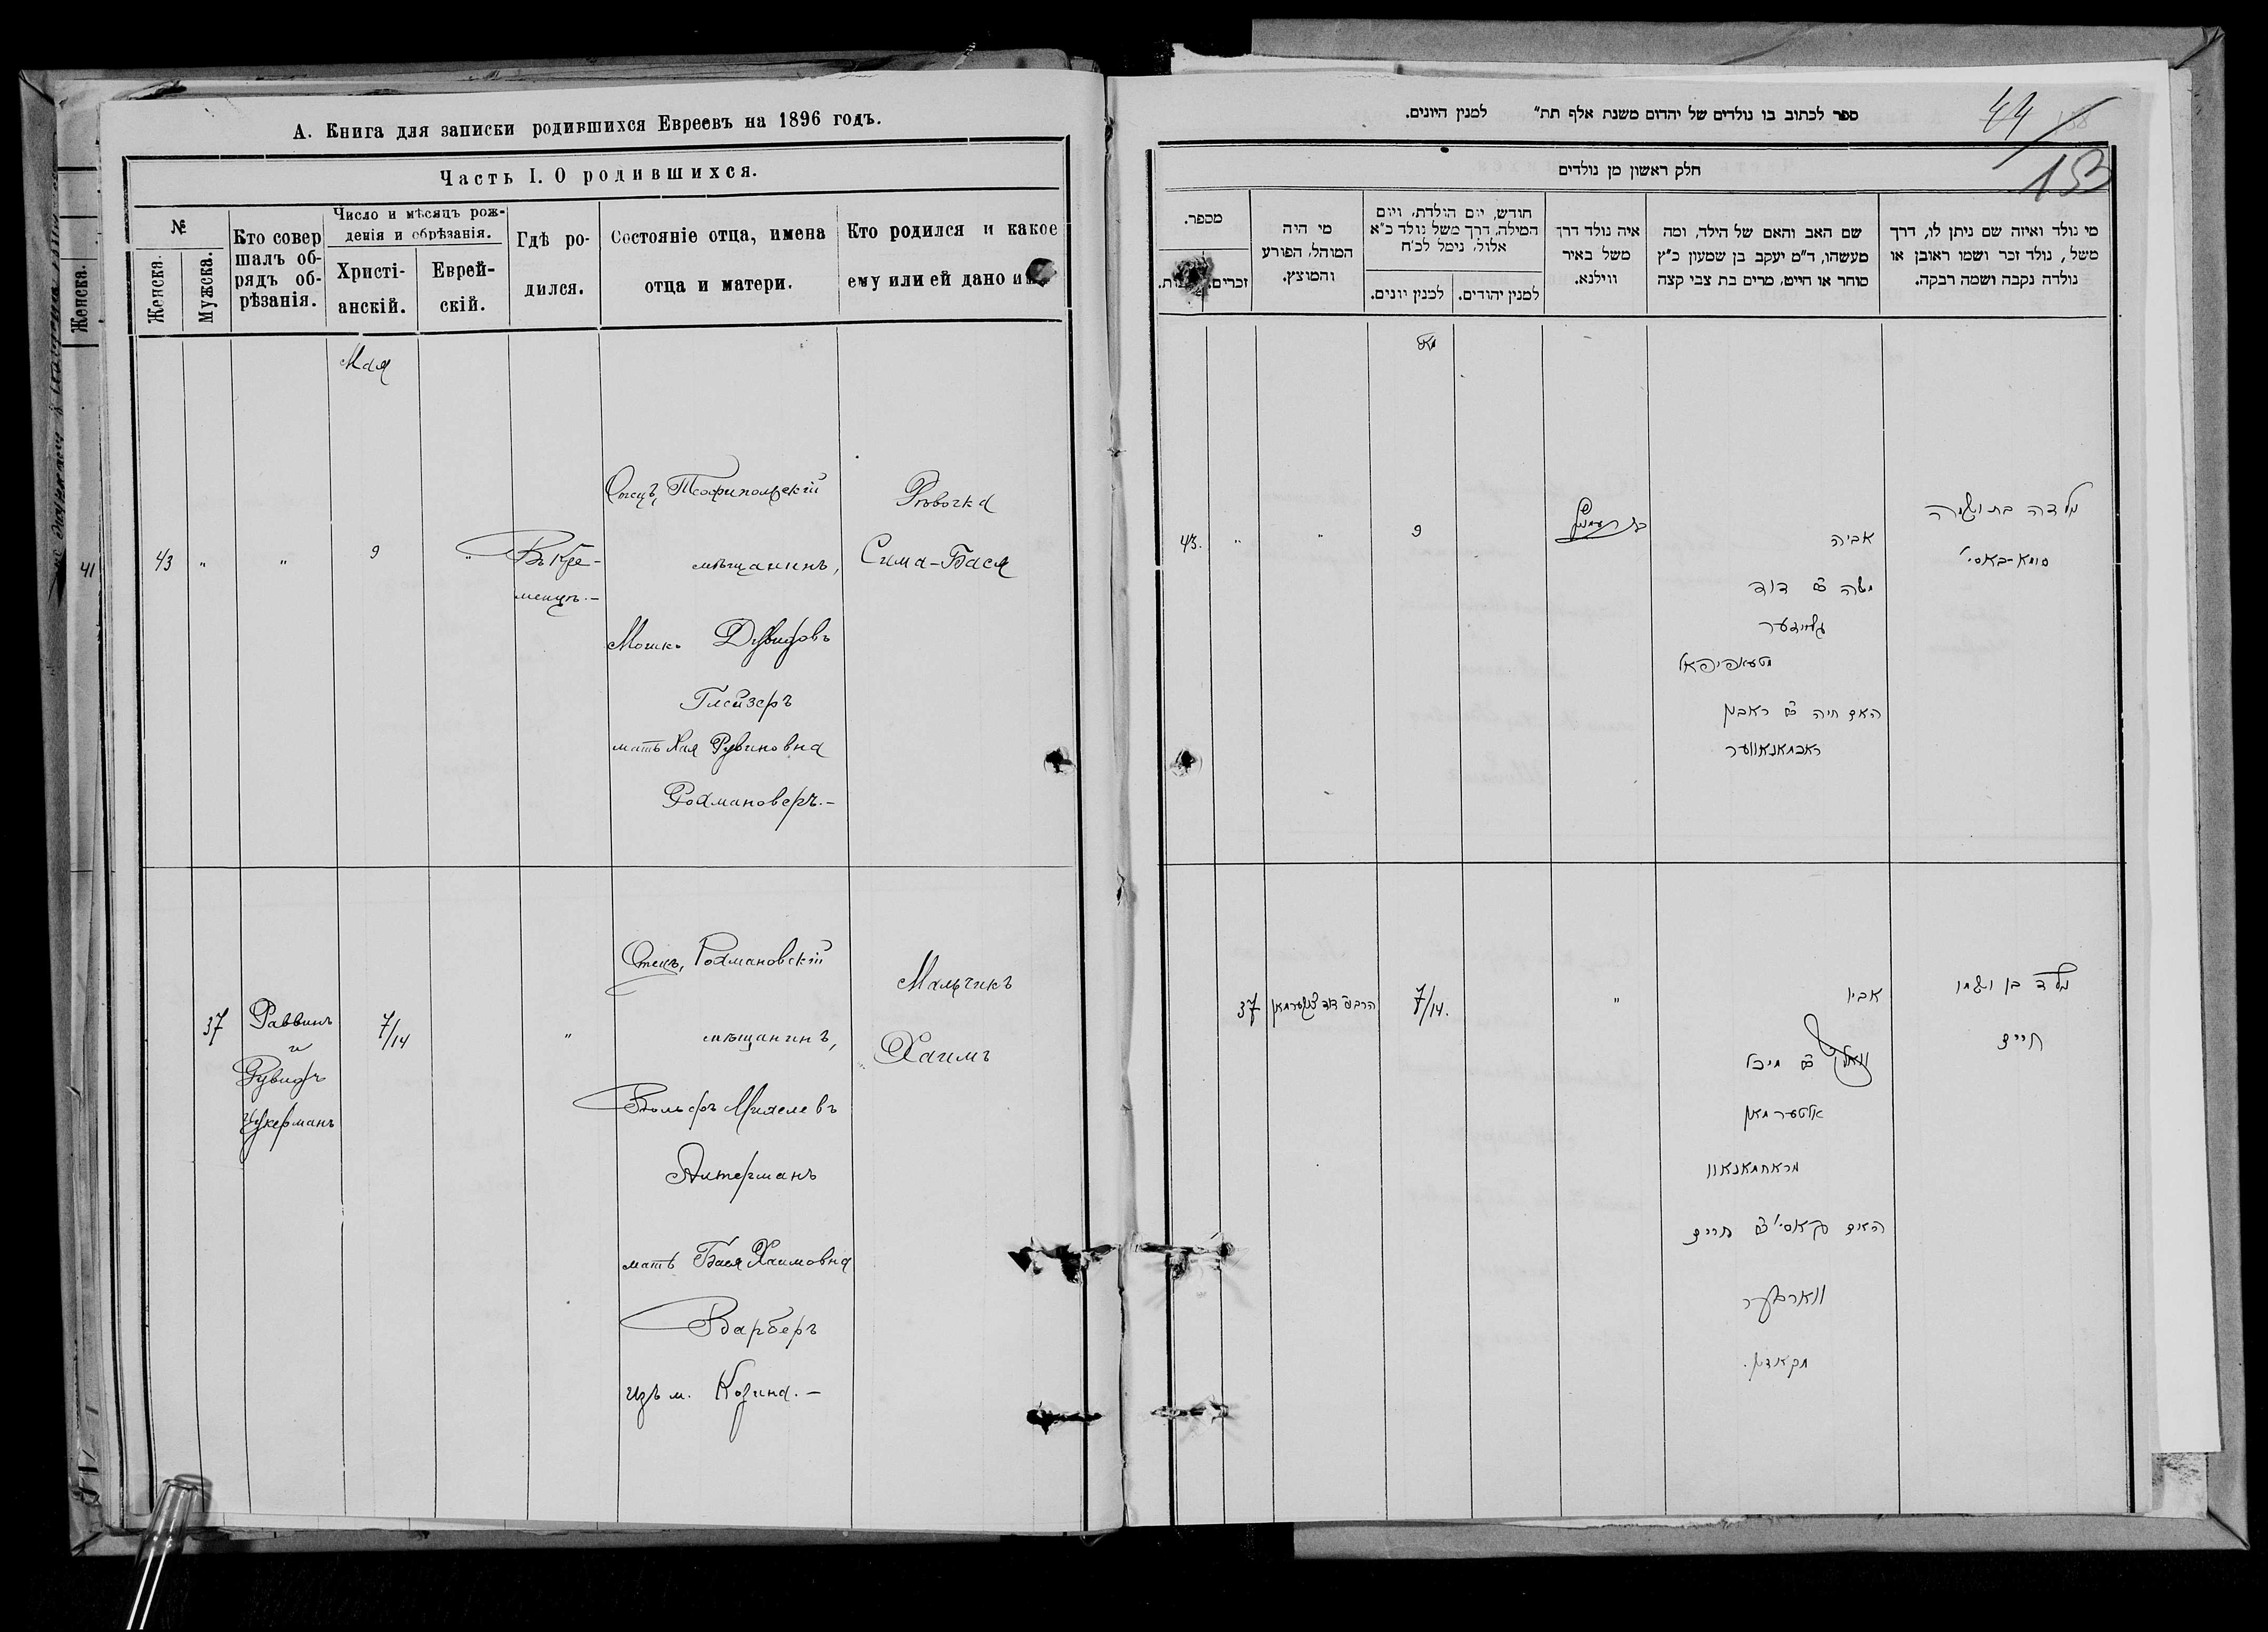 А. Книга для записки родившихся Евреевъ на 1896 годъ.
Часть I. О родившихся.
№
Женска.
Мужска.
Кто совер
шалъ об-
рядъ об-
рѣзанія.
Число и мѣсяцъ рож-
денія и обрѣзанія.
Христі-
анскій.
Еврей-
скій.
Гдѣ ро-
дился.
Состояніе отца, имена
отца и матери.
Кто родился и какое
ему или ей дано
Женска.
41
Мая
43 " " 9 "
Въ Кре-
менцѣ.-
Отецъ, Теофипольскій
мѣщанинъ,
Мошко Дувидовъ
Глейзеръ
мать Хая Рувиновна
Рохмановеръ.-
Дѣвочка
Сима-Бася
37
Раввинъ
и
Дувидъ
Цукерманъ
7/14
"
Отецъ, Рохмановскій
мѣщанинъ,
Вольфъ Михелевъ
Альтерманъ
мать Бася Хаимовна
Варберъ
изъ м. Козина.-
Мальчикъ
Хаимъ
44
153
ספר לכתוב בו נולדים של יהדום משנת אלף תת״ למנין היונים.
חלק ראשון מן נולדים
מי נולד ואיזה שם ניתן לו, דרך
משל, נולד זכר ושמו ראובן או
נולדה נקבה ושמה רבקה.
שם האב והאם של הילד, ומה
מעשהו, ד״מ יעקב בן שמעון כ״ץ
סוחר או חייט, מרים בת צבי קצה
איה נולד דרך
משל באיר
ווילנא.
חודש, יום הולדת, ויום
המילה, דרך משל נולד כ״א
אלול, נימל לכ״ח
למנין יהודים.
למנין יונים.
מי היה
המוהל, הפורע
והמוצץ.
מספר.
זכרים.
מאי
נולדה בת ושמה
סימא-באסי'
אביה
משה ב״ר דוד
גלייזער
מטעאפיפאל
האם חיה ב״ר ראובן
ראחמאנאווער
9
" "
43.
נולד בן ושמו
חיים
אביו
וואלף ב״ר מיכל
אלטערמאן
מראחמאנאוו
האם באסי' ב״ר חיים
ווארבער
מקאזין.
"
7/14.
הרב ור' דוד צוקערמאן
37